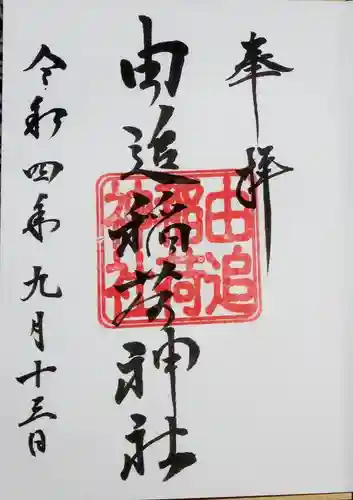 奉拝
由追稲荷神社
令和四年九月十三日
由追
稲荷
神社